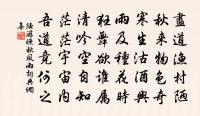 盡道漁村陋
秋來物色奇
寒生沽酒興
雨及種花時
狂舞欲誰屬
清吟空自知
茫茫宇宙內
吾道竟何之
陸游晚秋風雨詞典網
集